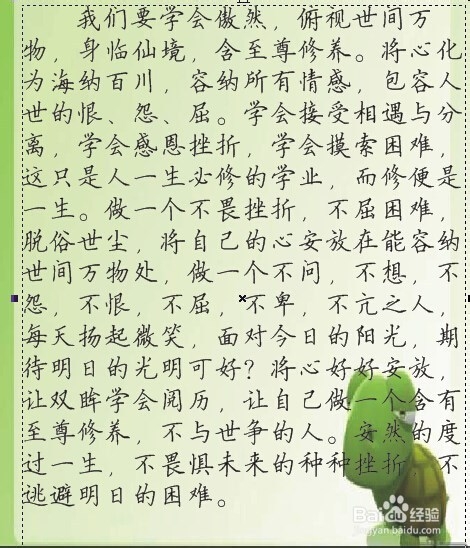 我们要学会傲然，俯视世间万
物，身临仙境，含至尊修养。将心化
为海纳百川，容纳所有情感，包容人
世的恨、怨、屈。学会接受相遇与分
离，学会感恩挫折，学会摸索困难，
这只是人一生必修的学业，而修便是
一生。做一个不畏挫折，不屈困难，
脱俗世尘，将自己的心安放在能容纳
世间万物处，做一个不问，不想，不
怨，不恨，不屈，不卑，不亢之人，
每天扬起微笑，面对今日的阳光，期
待明日的光明可好？将心好好安放，
让双眸学会阅历，让自己做一个含有
至尊修养，不与世争的人。安然的度
过一生，不畏惧未来的种种挫折，不
逃避明日的困难。
Baidu 经验
jingyan.baidu.com